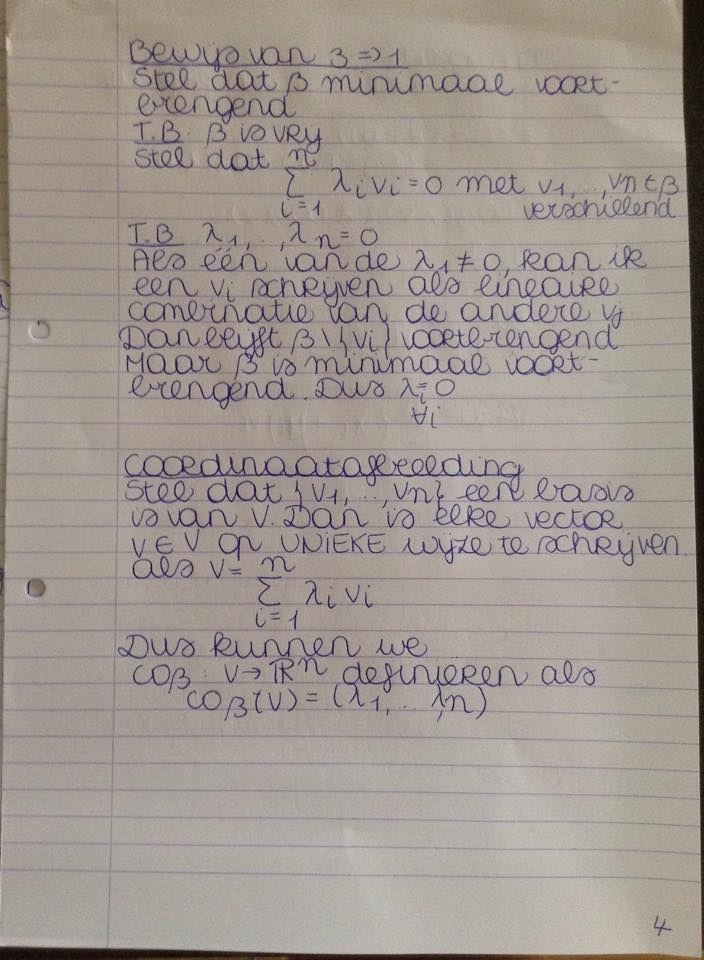 Bewijs van 3 => 1
Stel dat β minimaal voort-
brengend
T.B. β is vrij
Stel dat n
∑ λi vi = 0 met v1, .., vn ∈ β
i=1 verschillend
T.B. λ1, .., λn = 0
Als één van de λ1 ≠ 0, kan ik
een vi schrijven als lineaire
combinatie van de andere vj
Dan blijft β \ {vi} voortbrengend
Maar β is minimaal voort-
brengend. Dus λi = 0
∀i
Coördinaatafbeelding
Stel dat {v1, .., vn} een basis
is van V. Dan is elke vector
v ∈ V op UNIEKE wijze te schrijven
als v = n
∑ λi vi
i=1
Dus kunnen we
coβ : V → ℝn definiëren als
coβ(v) = (λ1, .., λn)
4